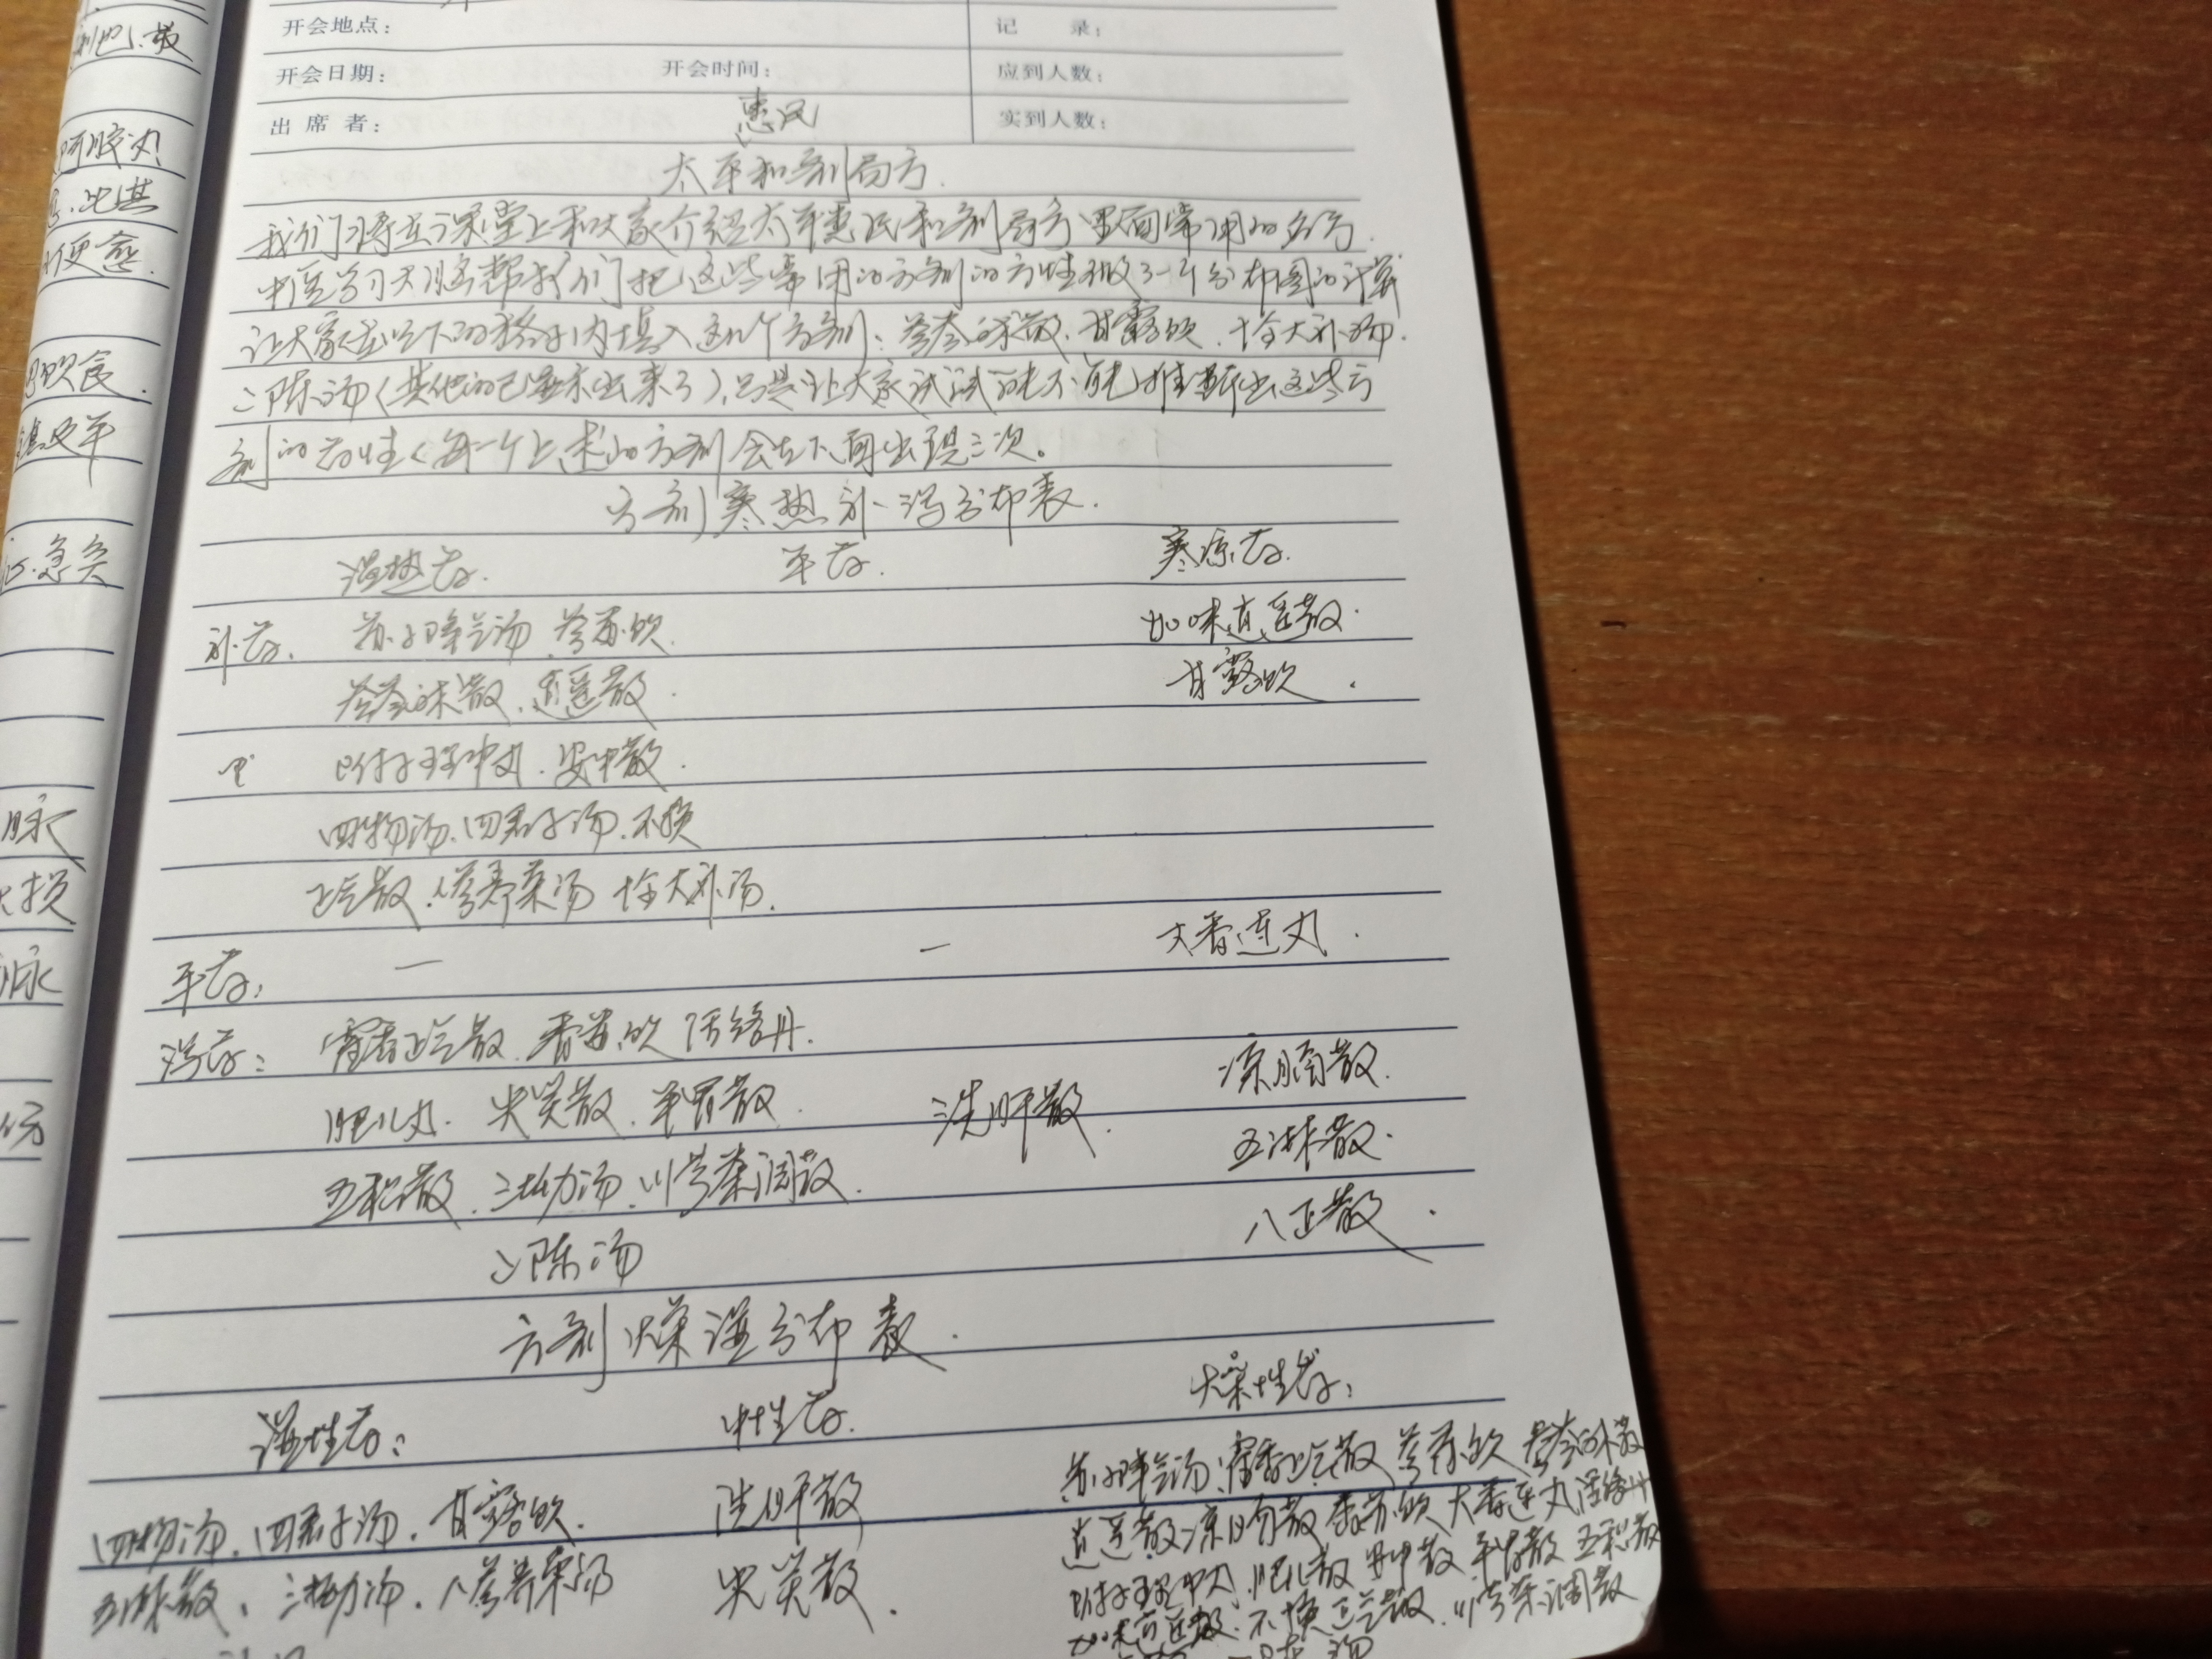 开会地点：
记 录：
开会日期：
开会时间：
应到人数：
出 席 者：
实到人数：
惠民
太平和剂局方.
我们将在课堂上和大家介绍太平惠民和剂局方里面常用的名方.
中医学习大脑帮我们把这些常用的方剂的方性做了一个分布图的计算
让大家在以下的格子内填入这几个方剂：参苓白术散.甘露饮.十全大补汤.
二陈汤(其他的已显示出来了),只是让大家试试能不能推断出这些方
剂的药性<每一个上述的方剂会在下面出现二次。
方剂寒热补泻分布表.
温热药.
平药.
寒凉药.
补药.
苏子降气汤.参苏饮.
加味逍遥散.
参苓白术散.逍遥散.
甘露饮.
附子理中丸.安中散.
四物汤.四君子汤.不换
正气散.人参养荣汤 十全大补汤.
平药：
一
一
大香连丸.
泻药：
藿香正气散.香苏饮 活络丹.
凉膈散.
肥儿丸.失笑散.平胃散.
洗肝散.
五淋散.
五积散.三拗汤.川芎茶调散.
八正散.
二陈汤
方剂燥湿分布表.
湿性药：
中性药.
燥性药：
四物汤.四君子汤.甘露饮.
洗肝散
苏子降气汤.藿香正气散 参苏饮 参苓白术散
逍遥散.凉膈散 香苏饮 大香连丸 活络丹
五淋散.三拗汤.人参养荣汤
失笑散.
附子理中丸.肥儿散 安中散 平胃散 五积散
加味逍遥散.不换正气散.川芎茶调散
阿胶丸
便愈.
饮食.
急矣
脉
大损